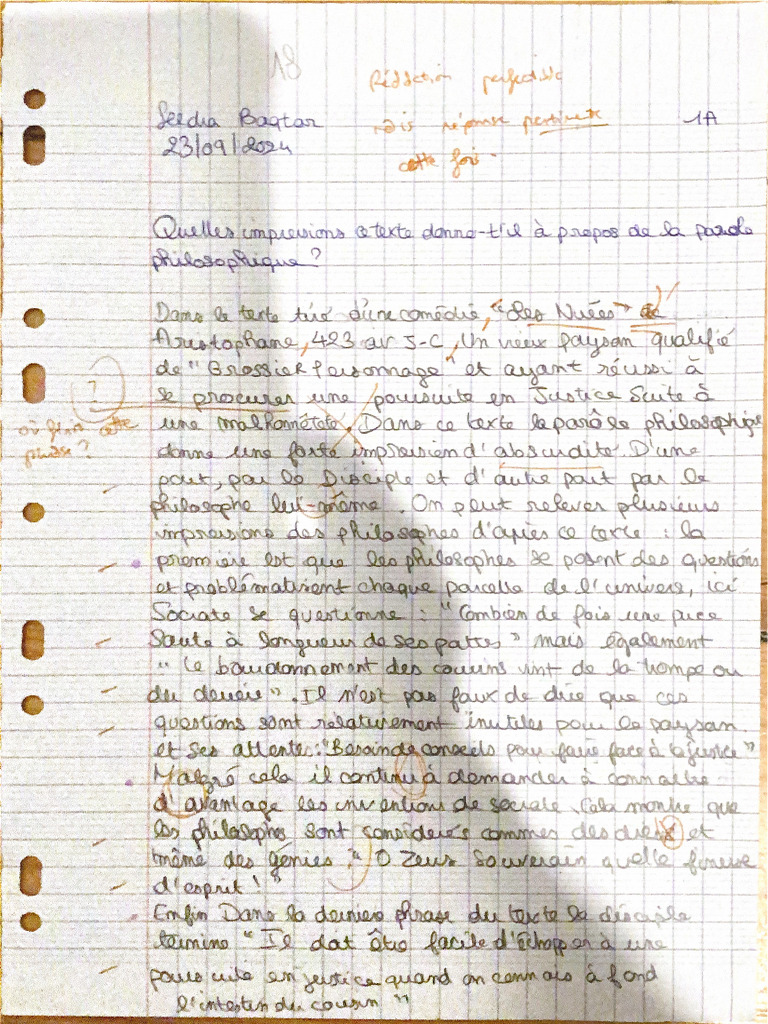 18
Rédaction perfectible
Seldra Baqtar mais réponse pertinente 1A
23/09/2024 cette fois.
Quelles impressions ce texte donne-t'il à propos de la parole
philosophique?
Dans le texte tiré d'une comédie, "Les Nuées" de
Aristophane, 423 av J-C, Un vieux paysan qualifié
de "Grossier Personnage" et ayant réussi à
?
se procurer une poursuite en Justice Suite à
où finit cette
une malhonêteté. Dans ce texte la parole philosophique
phrase ?
donne une forte impression d'absurdité. D'une
part, par le Disciple et d'autre part par le
philosophe lui-même. On peut relever plusieurs
impressions des philosophes d'après ce texte : la
première est que les philosophes se posent des questions
et problématisent chaque parcelle de l'univers, ici
Socrate se questionne : "Combien de fois une puce
saute à longueur de ses pattes" mais également
"Le bourdonnement des cousins vint de la trompe ou
du derrière". Il n'est pas faux de dire que ces
questions sont relativement inutiles pour le paysan
et ses attente : "Besoin de conseils pour faire face à la justice"
Malgré cela il continu à demander à connaître
d'avantage les inventions de socrate. Cela montre que
les philosophes sont considérés commes des dieux et
même des génies : "O Zeus Souverain quelle finesse
d'esprit !"
Enfin Dans la dernière phrase du texte le disciple
termine "Il doit être facile d'échapper à une
poursuite en justice quand on connais à fond
l'intestin du cousin"